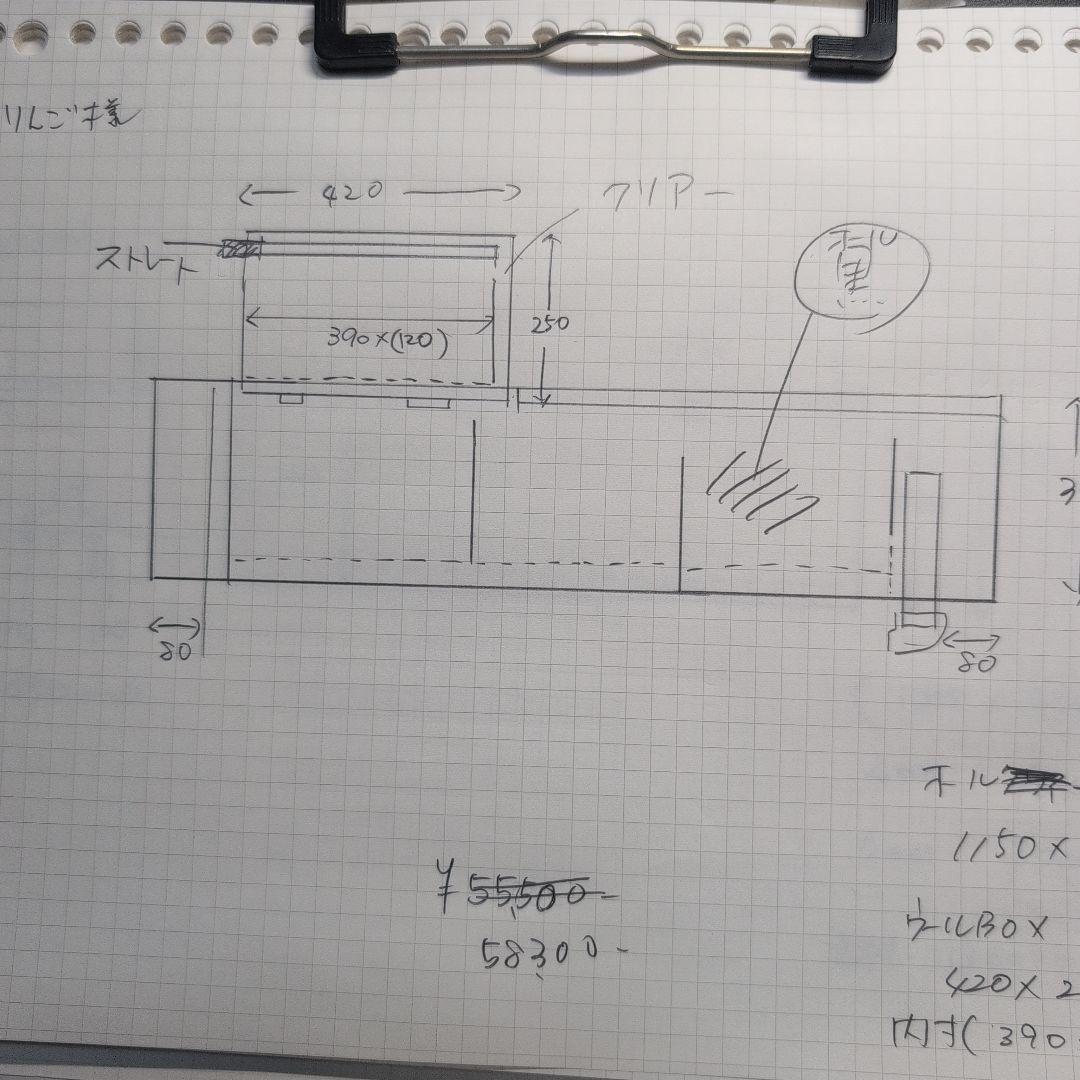 りんご様
420
クリアー
ストレート
250
390×(120)
3
80
80
ホル
1150×
¥55,500-
58,300-
ウールBOX
420×2
内寸(390